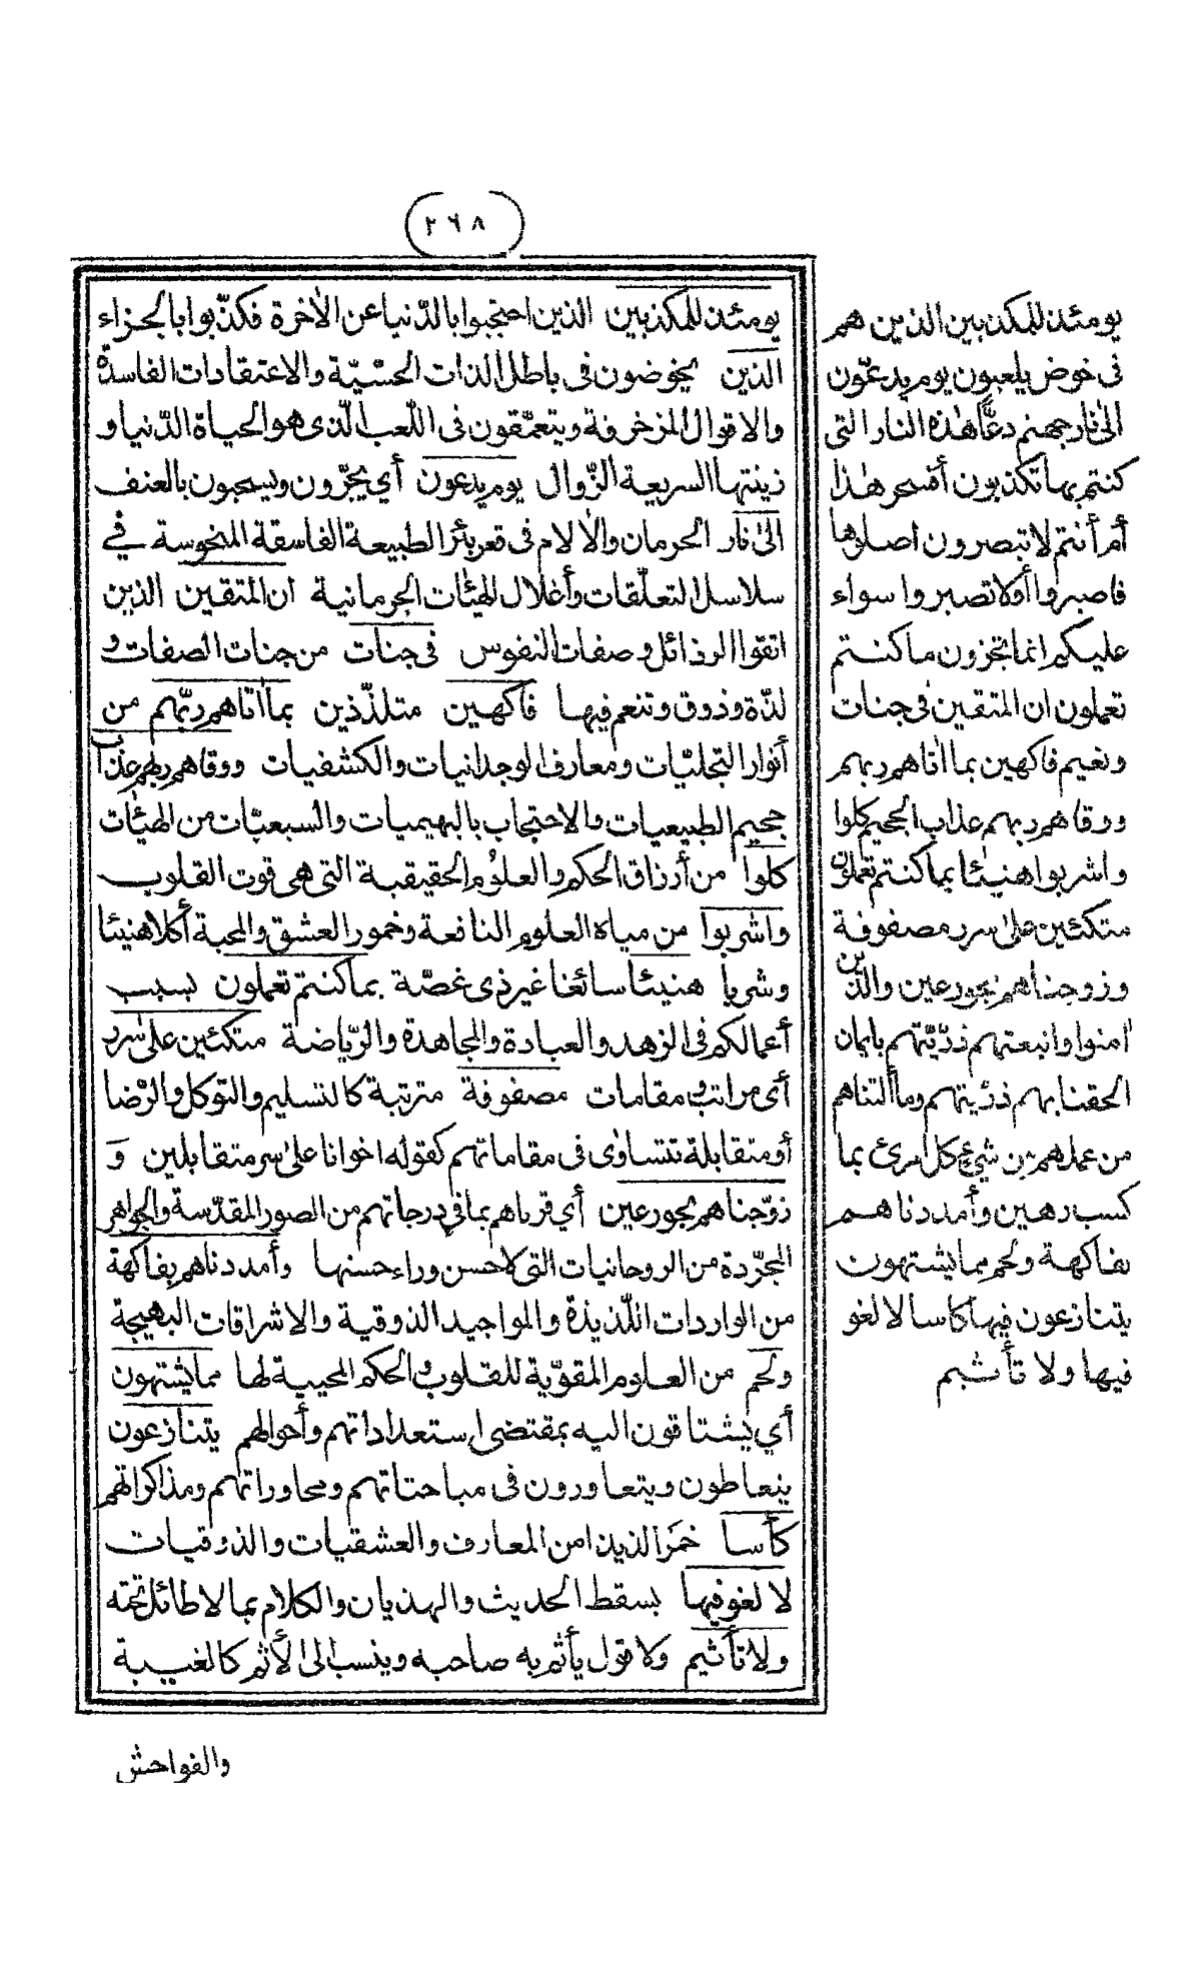 (٢٦٨)
يومئذ للمكذبين الذين هم
فى خوض يلعبون يوم يدعّون
الى نار جهنم دعًّا هذه النار التى
كنتم بها تكذبون أفسحر هذا
أم أنتم لا تبصرون اصلوها
فاصبروا أولا تصبروا سواء
عليكم انما تجزون ما كنتم
تعملون ان المتقين فى جنات
ونعيم فاكهين بما اٰتاهم ربهم
ووقاهم ربهم عذاب الجحيم كلوا
واشربوا هنيئا بما كنتم تعملون
متكئين على سرر مصفوفة
وزوجناهم بحور عين والذين
اٰمنوا واتبعتهم ذرّيّتهم بايمان
الحقنا بهم ذرّيتهم وما ألتناهم
من عملهم من شئ كل امرئ بما
كسب رهين وأمددناهم
بفاكهة ولحم مما يشتهون
يتنازعون فيها كاسا لا لغو
فيها ولا تأثيم
يومئذ للمكذبين الذين احتجبوا بالدّنيا عن الاٰخرة فكذّبوا بالجزاء
الذين يخوضون فى باطل الذات الحسّيّة والاعتقادات الفاسدة
والاقوال المزخرفة ويتعمّقون فى اللّعب الّذى هو الحياة الدّنيا و
زينتها السريعة الزّوال يوم يدعون أي يجرّون ويسحبون بالعنف
الى نار الحرمان والاٰلام فى قعر بئر الطبيعة الفاسقة المنحوسة في
سلاسل التعلّقات وأغلال الهيئات الجرمانية ان المتقين الذين
اتقوا الرذائل وصفات النفوس فى جنات من جنات الصفات و
لذّة وذوق وتنعم فيها فاكهين متلذّذين بما اٰتاهم ربّهم من
أنوار التجليّات ومعارف الوجدانيات والكشفيات ووقاهم ربهم عذاب
جحيم الطبيعيات والاحتجاب بالبهيميات والسبعيّات من الهيئات
كلوا من أرزاق الحكم والعلوم الحقيقية التى هى قوت القلوب
واشربوا من مياه العلوم النافعة وخمور العشق والمحبة أكلا هنيئا
وشربا هنيئا سائغا غير ذى غصّة بما كنتم تعملون بسبب
أعمالكم فى الزهد والعبادة والمجاهدة والرّياضة متكئين على سرر
أى مراتب ومقامات مصفوفة مترتبة كالتسليم والتوكل والرّضا
أو متقابلة تتساوى فى مقاماتهم كقوله اخوانا على سر متقابلين وَ
زوّجناهم بحور عين أي قرناهم بما في درجاتهم من الصور المقدّسة والجواهر
المجرّدة من الروحانيات التى لا حسن وراء حسنها وأمددناهم بفاكهة
من الواردات اللّذيذة والمواجيد الذوقية والاشراقات البهيجة
ولحم من العلوم المقوّية للقلوب والحكم المحيية لها مما يشتهون
أي يشتاقون اليه بمقتضى استعداداتهم وأحوالهم يتنازعون
يتعاطون ويتعاورون فى مباحثاتهم ومحاوراتهم ومذاكراتهم
كأسا خمَرا لذيذا من المعارف والعشقيات والذوقيات
لا لغو فيها بسقط الحديث والهذيان والكلام بما لا طائل تحته
ولا تأثيم ولا قول يأثم به صاحبه وينسب الى الأثم كالغيبة
والفواحش